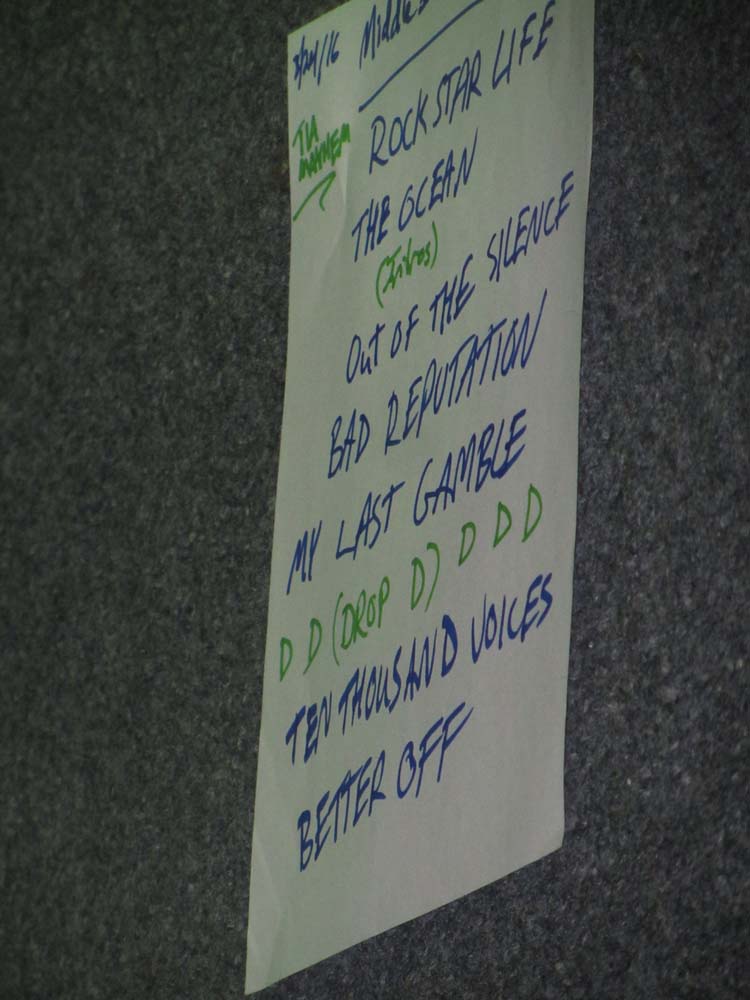 3/24/16
ROCKSTAR LIFE
THE OCEAN
(Intros)
OUT OF THE SILENCE
BAD REPUTATION
MY LAST GAMBLE
D D (DROP D) D D D
TEN THOUSAND VOICES
BETTER OFF